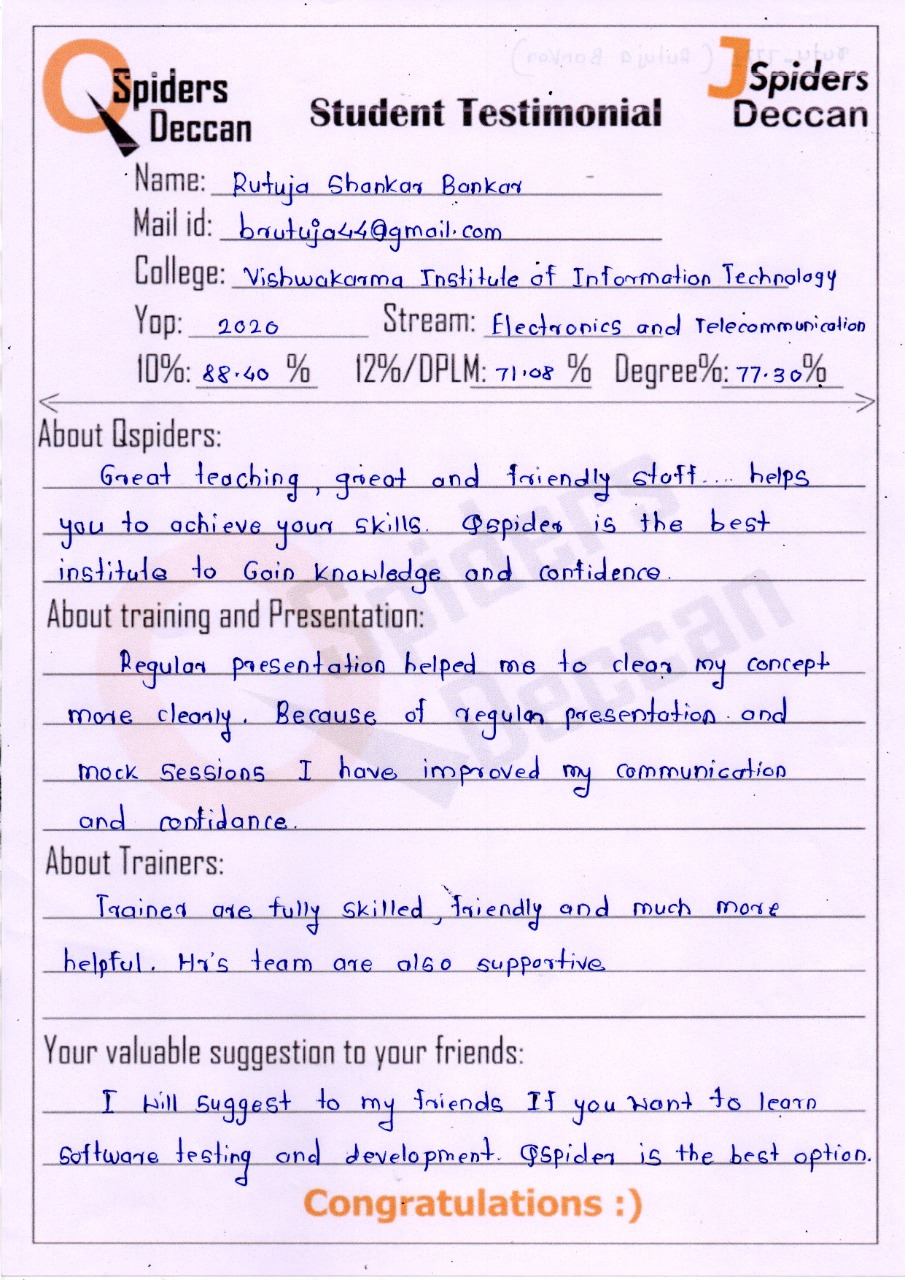 QSpiders
Deccan
Student Testimonial
JSpiders
Deccan
Name: Rutuja Shankar Bankar
Mail id: brutuja44@gmail.com
College: Vishwakarma Institute of Information Technology
Yop: 2020 Stream: Electronics and Telecommunication
10%: 88.40 % 12%/DPLM: 71.08 % Degree%: 77.30%
About Qspiders:
Great teaching, great and friendly staff.... helps
you to achieve your skills. Qspider is the best
institute to Gain knowledge and confidence.
About training and Presentation:
Regular presentation helped me to clear my concept
more clearly. Because of regular presentation and
mock sessions I have improved my communication
and confidance.
About Trainers:
Trainer are fully skilled, friendly and much more
helpful. Hr's team are also supportive
Your valuable suggestion to your friends:
I will suggest to my friends If you want to learn
software testing and development. QSpider is the best option.
Congratulations :)
QSpiders
Deccan